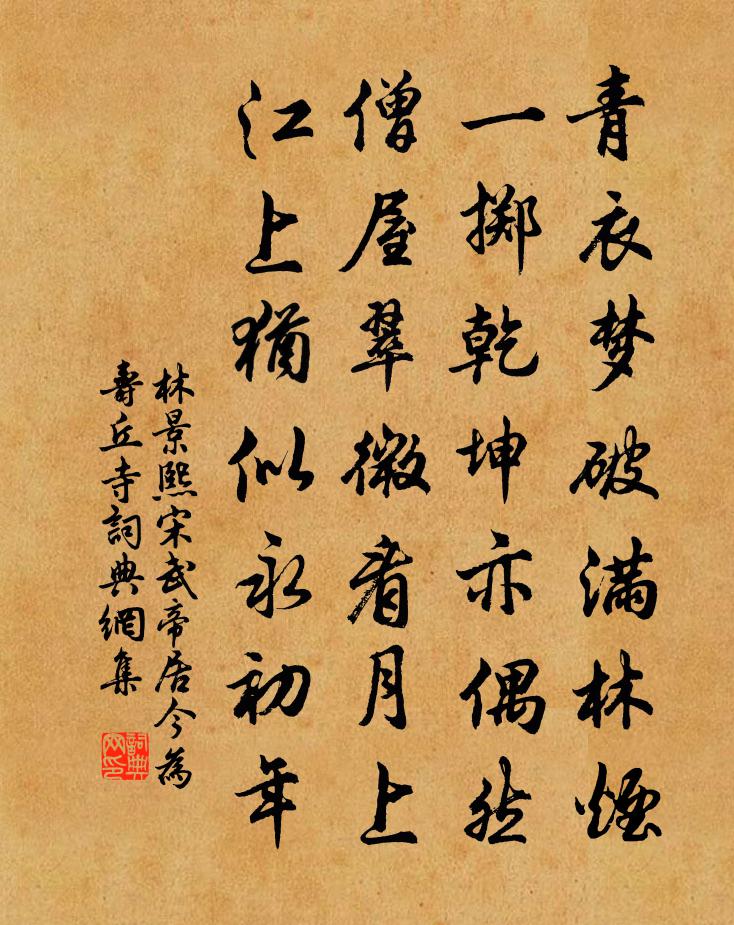 青衣梦破满林煙
一掷乾坤亦偶然
僧屋翠微看月上
江上猶似永初年
林景熙宋武帝居今為
壽丘寺詞典網集
詞典网印